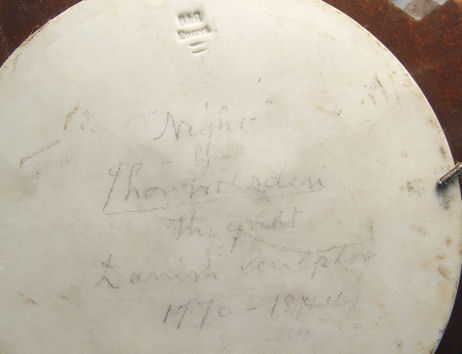 B&G
"Night"
by
Thorwalsden
the great
Danish Sculptor
1770 - 1844